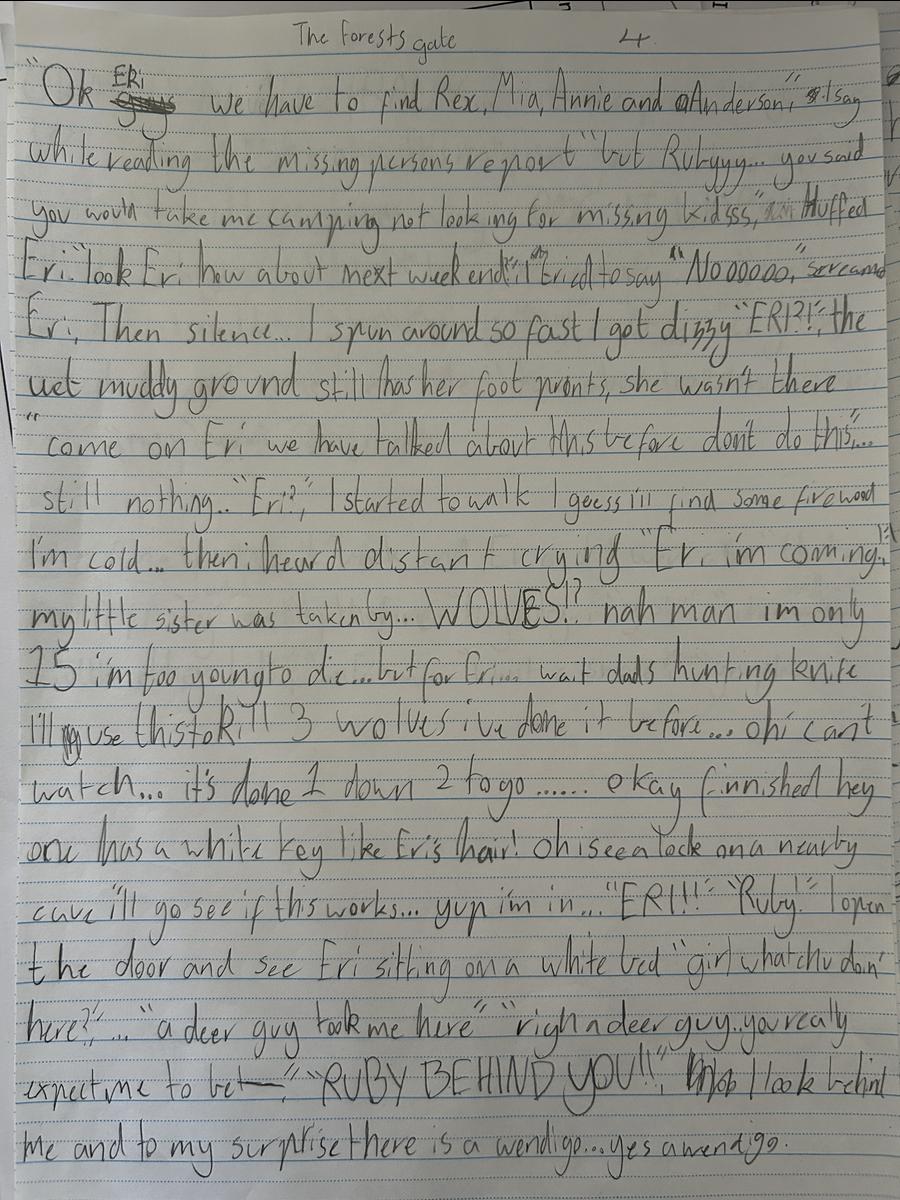 The Forests gate 4
"Ok ERi we have to find Rex, Mia, Annie and Anderson," I say
while reading the missing persons report "but Rubyyy... you said
you would take me camping not looking for missing kidsss," Huffed
Eri. "look Eri how about next weekend" I tried to say "Nooooooo," screamed
Eri, Then silence... I spun around so fast I got dizzy "ERI?!", the
wet muddy ground still has her foot prints, she wasn't there
"come on Eri we have talked about this before don't do this"...
still nothing.. "Eri?", I started to walk I guess i'll find some firewood
I'm cold... then i heard distant crying "Eri i'm coming!"
my little sister was taken by... WOLVES!? nah man im only
15 i'm too young to die...but for Eri.... wait dads hunting knife
I'll use this to kill 3 wolves i've done it before... oh i can't
watch... it's done 1 down 2 to go ...... okay finnished hey
one has a white key like Eri's hair! oh i see a lock on a nearby
cave i'll go see if this works... yup i'm in... "ERI!!" "Ruby!" I open
the door and see Eri sitting on a white bed "girl whatchu doin'
here?",... "a deer guy took me here" "righ a deer guy..you really
expect me to be—" "RUBY BEHIND YOU!!", I look behind
me and to my surprise there is a wendigo...yes a wendigo.